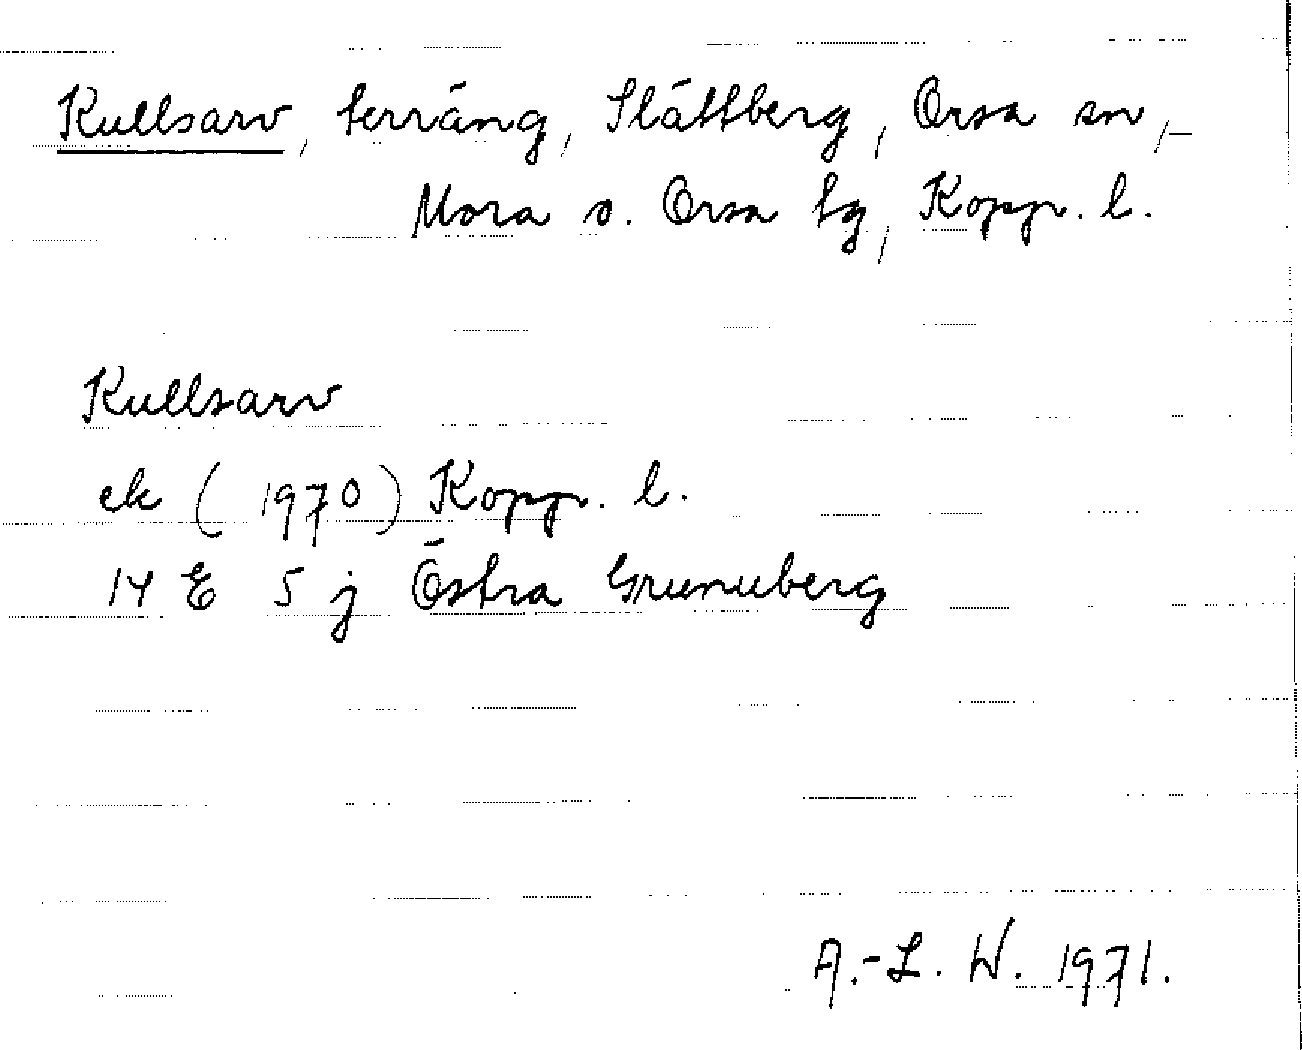 Kullsarv, terräng, Slättberg, Orsa sn,
Mora o. Orsa tg, Kopp. l.
Kullsarv
ek (1970) Kopp. l.
14 E 5 j Östra Grunuberg
A.-L. W. 1971.